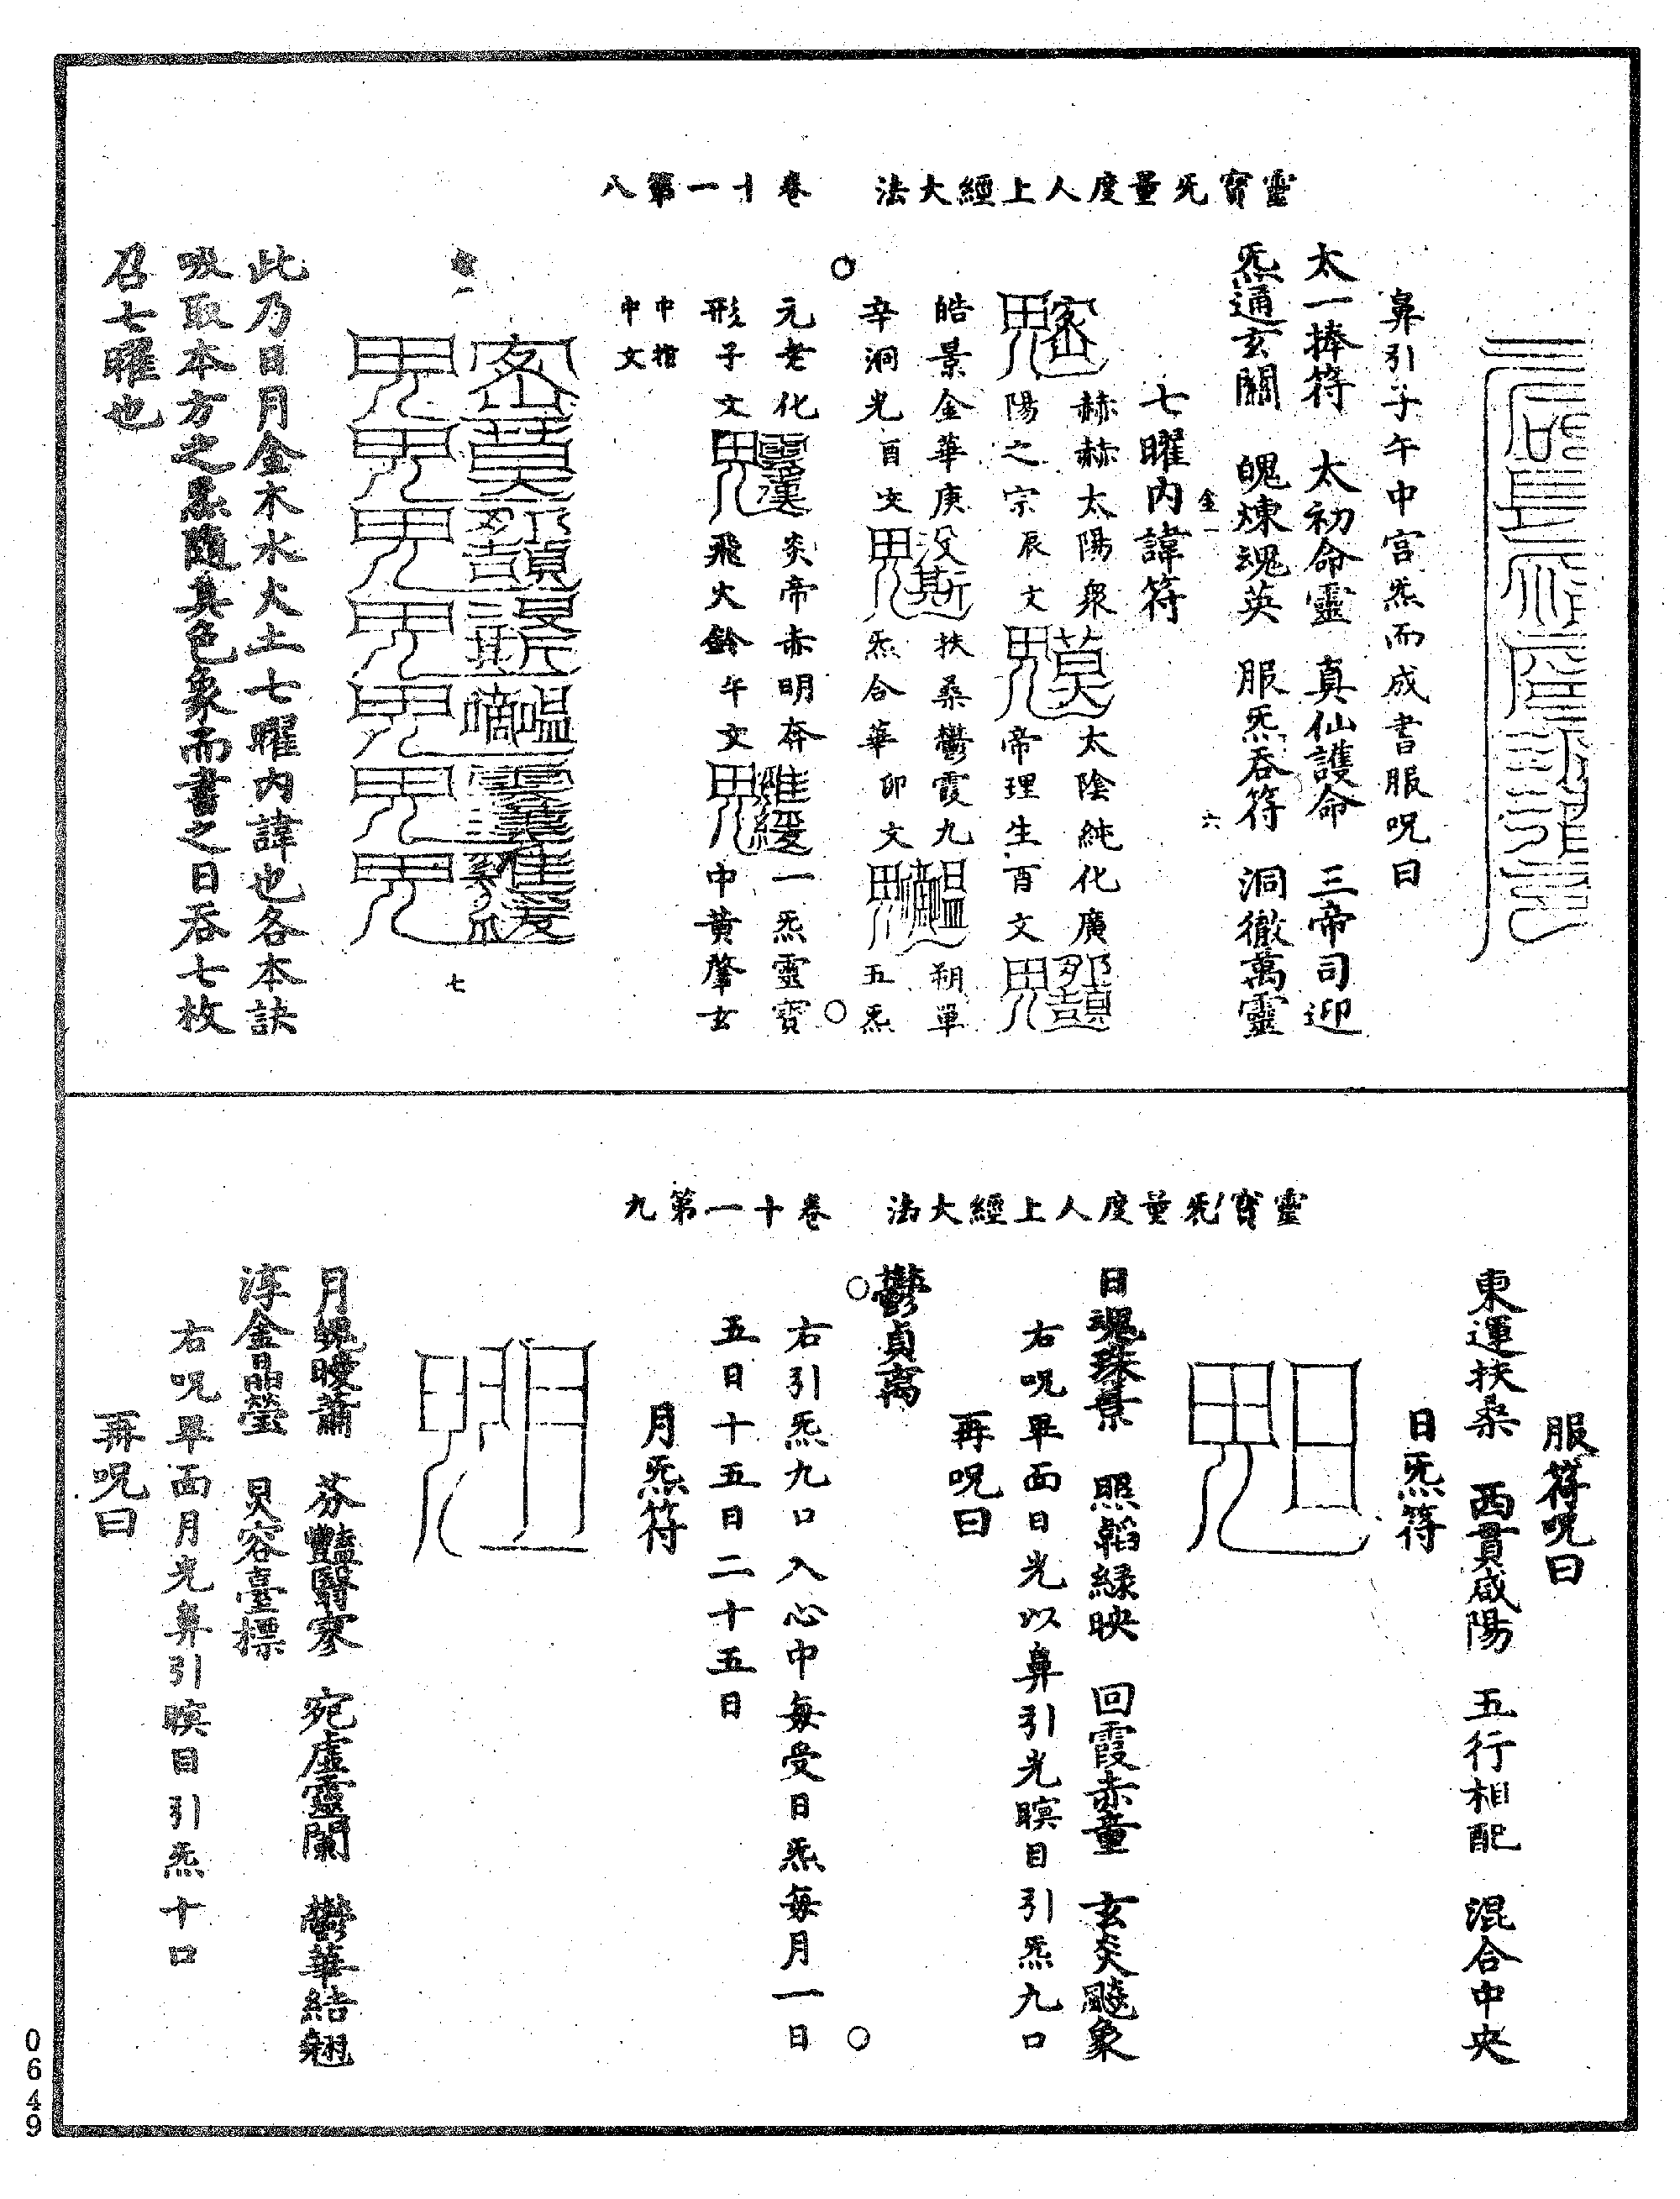 靈寳无量度人上經大法　卷十一第八
鼻引子午中宫炁而成書服呪曰
太一捧符　太初命靈　真仙護命　三帝司迎
炁通玄關　魄煉魂英　服炁吞符　洞徹萬靈
金一　六
七曜内諱符
赫赫太陽衆　太陰純化廣
陽之宗辰文　帝理生酉文
皓景金華庚　扶桑鬱霞九　朔單
辛洞光酉文　炁合華卯文　五炁
元老化　炎帝赤明奔　一炁靈寳
形子文　飛火鈴午文　中黄肇玄
中指
中文
七
此乃日月金木水火土七曜内諱也各本訣
吸取本方之炁隨其色象而書之日吞七枚
召七曜也
靈寳无量度人上經大法　卷十一第九
服符呪曰
東運扶桑　西貫咸陽　五行相配　混合中央
日炁符
日魂珠景　照韜緑映　回霞赤童　玄炎飈象
右呪畢面日光以鼻引光瞑目引炁九口
再呪曰
鬱貞萬
右引炁九口入心中每受日炁每月一日
五日十五日二十五日
月炁符
月魄曖蕭　芬豔翳寥　宛虚靈蘭　鬱華結翹
淳金晶瑩　炅容臺標
右呪畢面月光鼻引瞑目引炁十口
再呪曰
0649